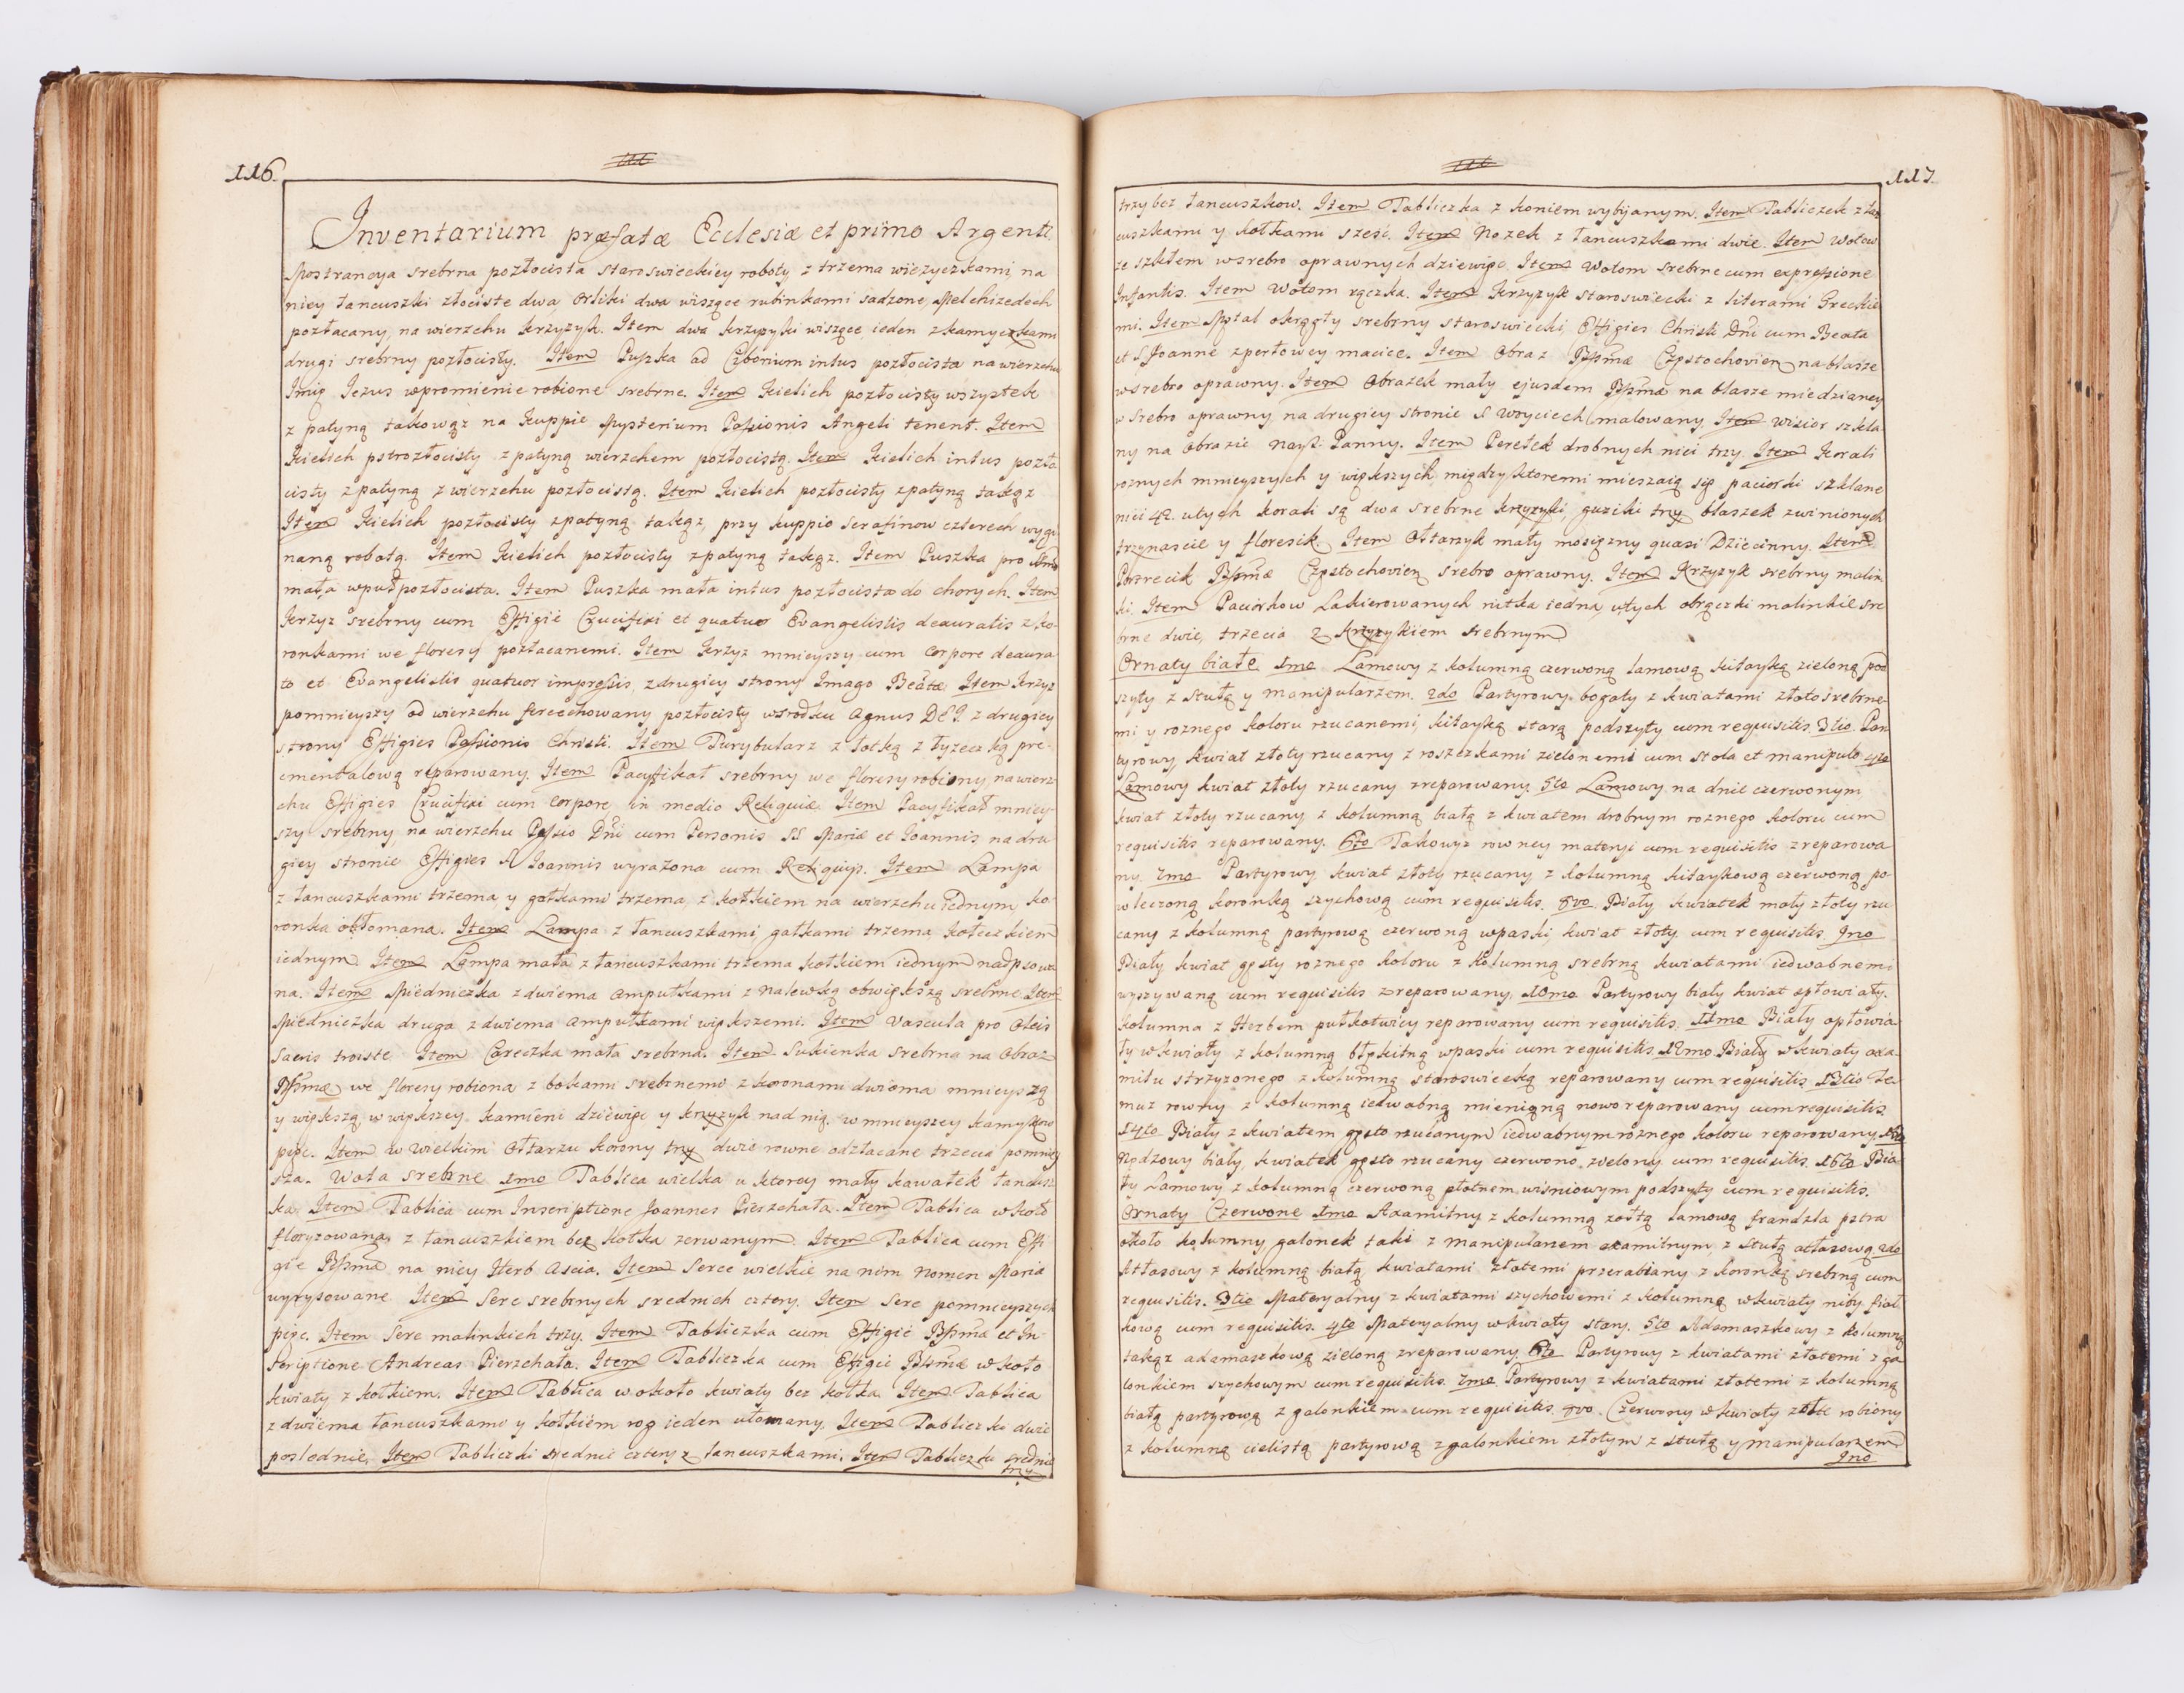 116.
Inventarium præfatæ Ecclesiæ et primo Argenti.
Mostrancya srebrna pozłocista staroswieckiey roboty z trzema wieżyczkami, na
niey łancuszki złociste dwa, Orliki dwa wiszące rubinkami sadzone, Melchizedech
pozłacany, na wierzchu krzyzyk. Item dwa krzyzyki wiszące ieden zkamyczkami
drugi srebrny pozłocisty. Item Puszka ad Cyborium intus pozłocista na wierzchu
Imię Iezus wpromienie robione srebrne. Item Kielich pozłocisty wszystek
z patyną takowąz na Kuppie Mysterium Passionis Angeli tenent. Item
Kielich pstrozłocisty z patyną wierzchem pozłocistą. Item Kielich intus pozło
cisty zpatyną z wierzchu pozłocistą. Item Kielich pozłocisty zpatyną takąz
Item Kielich pozłocisty zpatyną takąz, przy kuppie Serafinow czterech wygi
naną robotą. Item Kielich pozłocisty zpatyną takąz. Item Puszka pro
mała wpuł pozłocista. Item Puszka mała intus pozłocista do chorych. Item
Krzyz srebrny cum Effigie Crucifixi et quatuor Evangelistis deauratis z ko-
ronkami we floresy pozłacanemi. Item Krzyz mnieyszy cum Corpore deaura
to et Evangelistis quatuor impressis, zdrugiey strony Imago Beatæ. Item Krzyz
pomnieyszy od wierzchu ferechowany pozłocisty wsrodku Agnus DEI. z drugiey
strony Effigies Passionis Christi. Item Turybularz z łotką z łyzeczką pre-
ementalową reparowany. Item Pacyfikał srebrny we floresy robiony, na wierz-
chu Effigies Crucifixi cum Corpore, in medio Reliquiæ. Item Pacyfikał mniey-
szy srebrny, na wierzchu Passio Dni cum Personis SS Mariæ et Ioannis, na dru
giey stronie Effigies S Ioannis wyrażona cum Reliquijs. Item Lampa
z łancuszkami trzema, y gałkami trzema, z kołkiem na wierzchu iednym, ko-
ronka obłomana. Item Lampa z łancuszkami, gałkami trzema, kołeczkiem
iednym. Item Lampa mała z łancuszkami trzema kołkiem iednym nadpsowa
na. Item Miedniczka zdwiema ampułkami z nalewką obwiększą srebrne. Item
Miedniczka druga zdwiema ampułkami większemi. Item Vascula pro Oleis
Sacris troiste Item Careczka mała srebrna. Item Sukienka srebrna na Obraz
Bssmæ we floresy robiona z bokami srebrnemi zkoronami dwiema mnieyszą
y większą, w większey kamieni dziewięć y krzyzyk nad nią, wmnieyszey kamykow
pięc. Item w Wielkim Ołtarzu korony trzy dwie rowne odzłacane trzecia pomniey
sza. Wota srebrne 1mo Tablica wielka u ktorey mały kawałek łancusz
ka. Item Tablica cum Inscriptione Joannes Pieszchała. Item Tablica wkoł
floryzowana z łancuszkiem bez kołka zerwanym. Item Tablica cum Effi
gie Bssmæ na niey Herb Ascia. Item Serce wielkie na nim Nomen Maria
wyrysowane Item Serc srebrnych srednich cztery. Item Serc pomnieyszych
pięc. Item Serc malinkich trzy. Item Tabliczka cum Effigie Bssmæ et In-
scriptione Andreas Pierzchała. Item Tabliczka cum Effigie Bssmæ wkoło
kwiaty z kołkiem. Item Tablica wokoło kwiaty bez kołka. Item Tablica
z dwiema łancuszkami y kołkiem rog ieden ułomany. Item Tabliczki dwie
poslednie. Item Tabliczki srednie cztery z łancuszkami. Item Tabliczki srednie
trzy
117.
trzy bez łancuszkow. Item Tabliczka z koniem wybijanym. Item Tabliczek złan
cuszkami y kołkami sześć. Item Nozek z łancuszkami dwie. Item Wotow
ze szkłem wsrebro oprawnych dziewięc. Item Wotom srebrne cum expressione
Infantis. Item Wotom rączka. Item Krzyzyk staroswiecki z literami Greckie
mi. Item Mstal okrągły srebrny staroswiecki, Effigies Christi Dni cum Beata
et S Joanne zperłowey macice. Item Obraz Bssmæ Częstochovien na blasze
wsrebro oprawny. Item Obrazek mały ejusdem Bssmæ na blasze miedzianey
w srebro oprawny na drugiey stronie S Woyciech malowany. Item wisior szkla
ny na Obrazie Nayś. Panny. Item Perełek drobnych nici trzy. Item Korali
roznych mnieyszych y większych między ktoremi mieszaią się paciorki szklane
nici 42. utych korali są dwa srebrne krzyzyki, guziki trzy blaszek zwinionych
trzynascie y floresik. Item Ołtarzyk mały mosięzny quasi Dziecinny. Item
Portrecik Bssmæ Częstochovien srebro oprawny. Item Krzyzyk srebrny malin
ki. Item Paciorkow Lakierowanych nitka iedna, utych obrączki malinkie sre
brne dwie, trzecia z krzyzykiem srebrnym
Ornaty białe 1mo Lamowy z kolumną czerwoną lamową kitayką zieloną pod
szyty z stułą y manipularzem. 2do Partyrowy bogaty z kwiatami złoto srebrne
mi y roznego koloru rzucanemi, kitayką starą podszyty cum requisitis. 3tio Par
tyrowy kwiat złoty rzucany z roszczkami zielonemi cum stola et manipulo 4to
Lamowy kwiat złoty rzucany zreparowany. 5to Lamowy na dnie czerwonym
kwiat złoty rzucany z kolumną białą z kwiatem drobnym roznego koloru cum
requisitis reparowany. 6to Takowyz rowney materyi cum requisitis zreparowa
ny. 7mo Partyrowy kwiat złoty rzucany z kolumną kitaykową czerwoną po-
wleczoną koronką szychową cum requisitis. 8vo Biały kwiatek mały złoty rzu
cany z kolumną partyrową czerwoną wpaski, kwiat złoty cum requisitis. 9no
Biały kwiat gęsty roznego koloru z kolumną srebrną kwiatami iedwabnemi
wyszywaną cum requisitis zreparowany. 10mo Partyrowy biały kwiat opłowiały.
Kolumna z Herbem pułkotwicy reparowany cum requisitis. 11mo Biały opłowia
ły wkwiaty z kolumną błękitną wpaski cum requisitis. 12mo Biały wkwiaty axa-
mitu strzyzonego z kolumną staroswiecką reparowany cum requisitis. 13tio Te
muz rowny z kolumną iedwabną mieniąną nowo reparowany cum requisitis.
14to Biały z kwiatem gęsto rzucanym iedwabnym roznego koloru reparowany. 15to
Rądzowy biały, kwiatek gęsto rzucany czerwono zielony cum requisitis. 16to Bia
ły Lamowy z kolumną czerwoną płotnem wiśniowym podszyty cum requisitis.
Ornaty Czerwone 1mo Axamitny z kolumną zołtą lamową frandzla pstra
około kolumny galonek taki z manipularzem axamitnym, z stułą atłasową. 2do
Atłasowy z kolumną białą kwiatami złotemi przerabiany z koronką srebrną cum
requisitis. 3tio Materyalny z kwiatami szychowemi z kolumną wkwiaty niby fiał
kową cum requisitis. 4to Materyalny wkwiaty stary. 5to Adamaszkowy z kolumną
takąz adamaszkową zieloną zreparowany. 6to Partyrowy z kwiatami złotemi z ga
lonkiem szychowym cum requisitis. 7mo Partyrowy z kwiatami złotemi z kolumną
białą partyrową z galonkiem cum requisitis. 8vo. Czerwony w kwiaty złote robiony
z kolumną cielistą partyrową zgalonkiem złotym z stułą y manipularzem.
9no